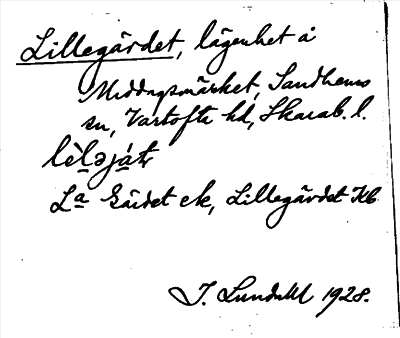 Lillegärdet, lägenhet å
Middagsmärket, Sandhems
sn, Vartofta hd, Skarab. l.
La Gärdet ek, Lillegärdet Kb
J. Lundahl 1928.